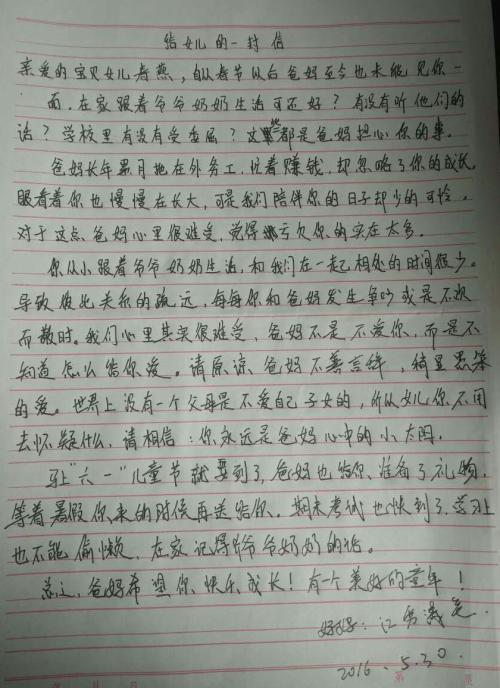 给女儿的一封信
亲爱的宝贝女儿春燕，自从春节以后爸妈至今也未能见你一
面，在家跟着爷爷奶奶生活可还好？有没有听他们的
话？学校里有没有受委屈？这些都是爸妈担心你的事。
爸妈长年累月地在外务工，忙着赚钱，却忽略了你的成长
眼看着你也慢慢在长大，可是我们陪伴你的日子却少的可怜。
对于这点，爸妈心里很难受，觉得亏欠你的实在太多。
你从小跟着爷爷奶奶生活，和我们在一起相处的时间很少。
导致彼此关系的疏远，每每你和爸妈发生争吵或是不欢
而散时。我们心里其实很难受，爸妈不是不爱你，而是不
知道怎么给你爱。请原谅，爸妈不善言辞，稍显愚笨
的爱。世界上没有一个父母是不爱自己子女的，所以女儿你不用
去怀疑什么，请相信：你永远是爸妈心中的小太阳。
马上“六一”儿童节就要到了，爸妈也给你准备了礼物，
等着暑假你来的时候再送给你。期末考试也快到了，学习上
也不能偷懒，在家记得听爷爷奶奶的话。
总之，爸妈希望你快乐成长！有一个美好的童年！
妈妈：江
2016.5.30